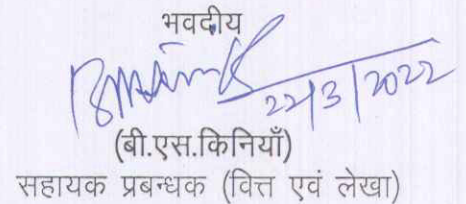 भवदीय
22/3/2022
(बी.एस.किनियाँ)
सहायक प्रबन्धक (वित्त एवं लेखा)